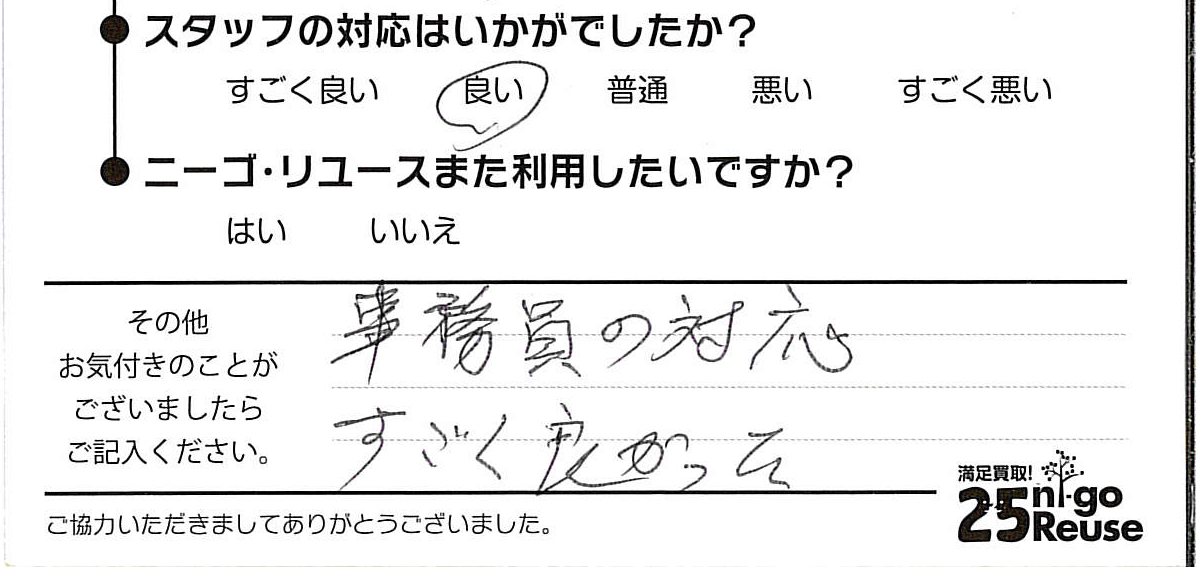 スタッフの対応はいかがでしたか？
すごく良い 良い 普通 悪い すごく悪い
ニーゴ・リユースまた利用したいですか？
はい いいえ
その他
お気付きのことが
ございましたら
ご記入ください。
事務員の対応
すごく良かった
満足買取!
25 ni-go
Reuse
ご協力いただきましてありがとうございました。